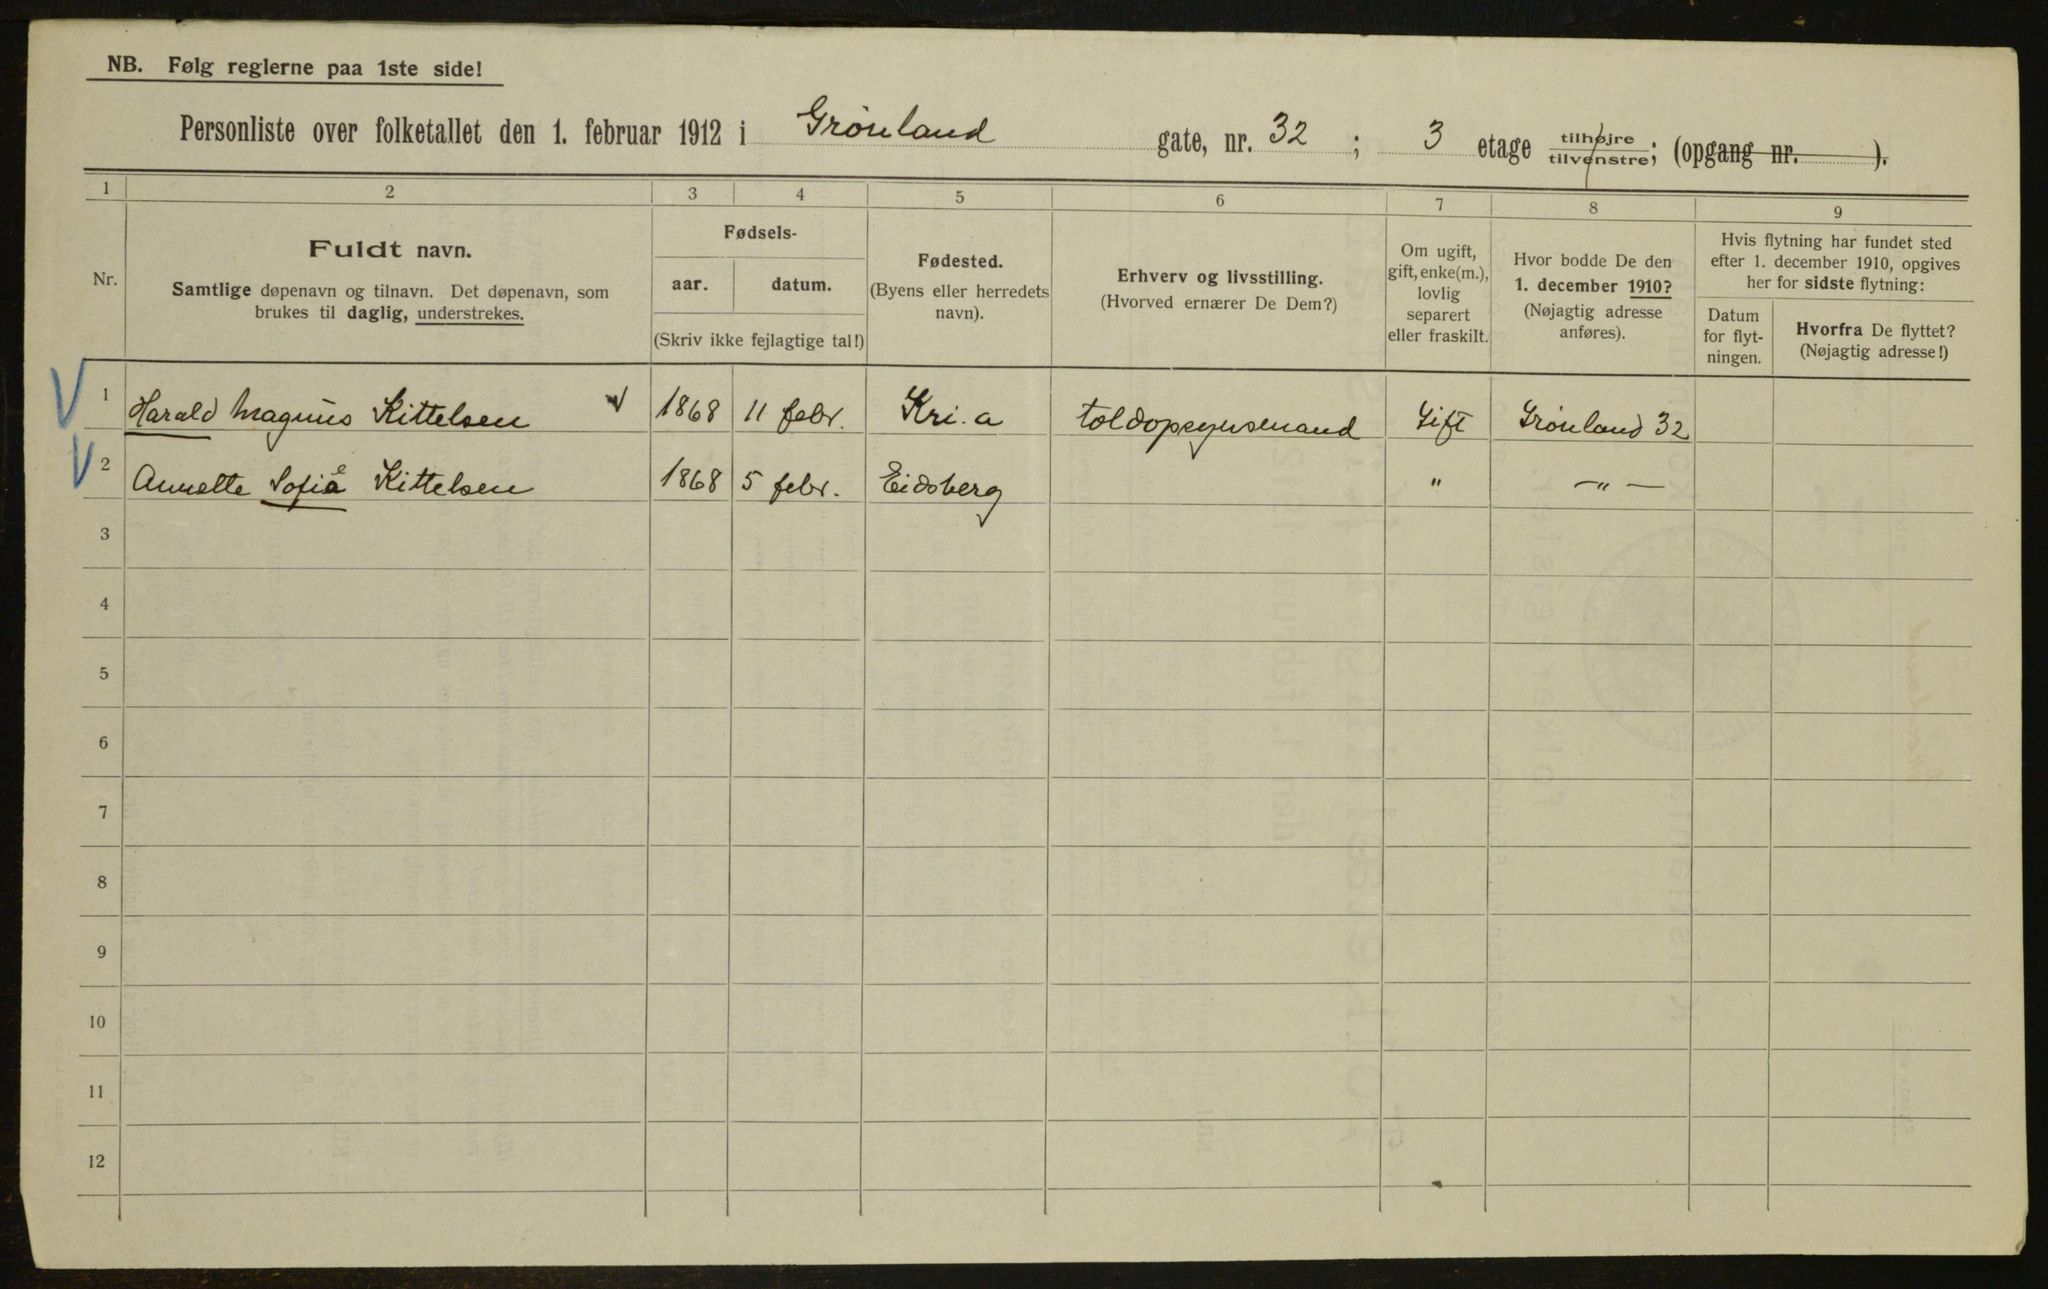 NB. Følg reglerne paa 1ste side!
Personliste over folketallet den 1. februar 1912 i Grønland gate, nr. 32 ; 3 etage tilhøjre/tilvenstre; (opgang nr. ).
1 2 3 4 5 6 7 8 9
Nr.
Fuldt navn.
Samtlige døpenavn og tilnavn. Det døpenavn, som
brukes til daglig, understrekes.
Fødsels-
aar. datum.
(Skriv ikke fejlagtige tal!)
Fødested.
(Byens eller herredets
navn).
Erhverv og livsstilling.
(Hvorved ernærer De Dem?)
Om ugift,
gift, enke(m.),
lovlig
separert
eller fraskilt.
Hvor bodde De den
1. december 1910?
(Nøjagtig adresse
anføres).
Hvis flytning har fundet sted
efter 1. december 1910, opgives
her for sidste flytning:
Datum
for flyt-
ningen.
Hvorfra De flyttet?
(Nøjagtig adresse!)
1 Harald Magnus Kittelsen 1868 11 febr. Kri.a toldopsynsmand Gift Grønland 32
2 Annette Sofie Kittelsen 1868 5 febr. Eidsberg " —"—
3
4
5
6
7
8
9
10
11
12